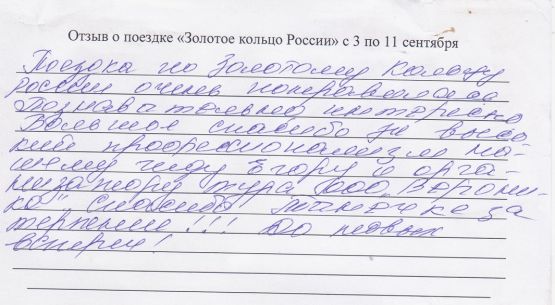 Отзыв о поездке «Золотое кольцо России» с 3 по 11 сентября
Поездка по Золотому Кольцу
россии очень понравилась
Познавательно интересно
Большое спасибо за высо-
кий профессионализм на-
шему гиду Егору и орга-
низатору тура ООО
спасибо за
терпение!!! До новых
встреч!